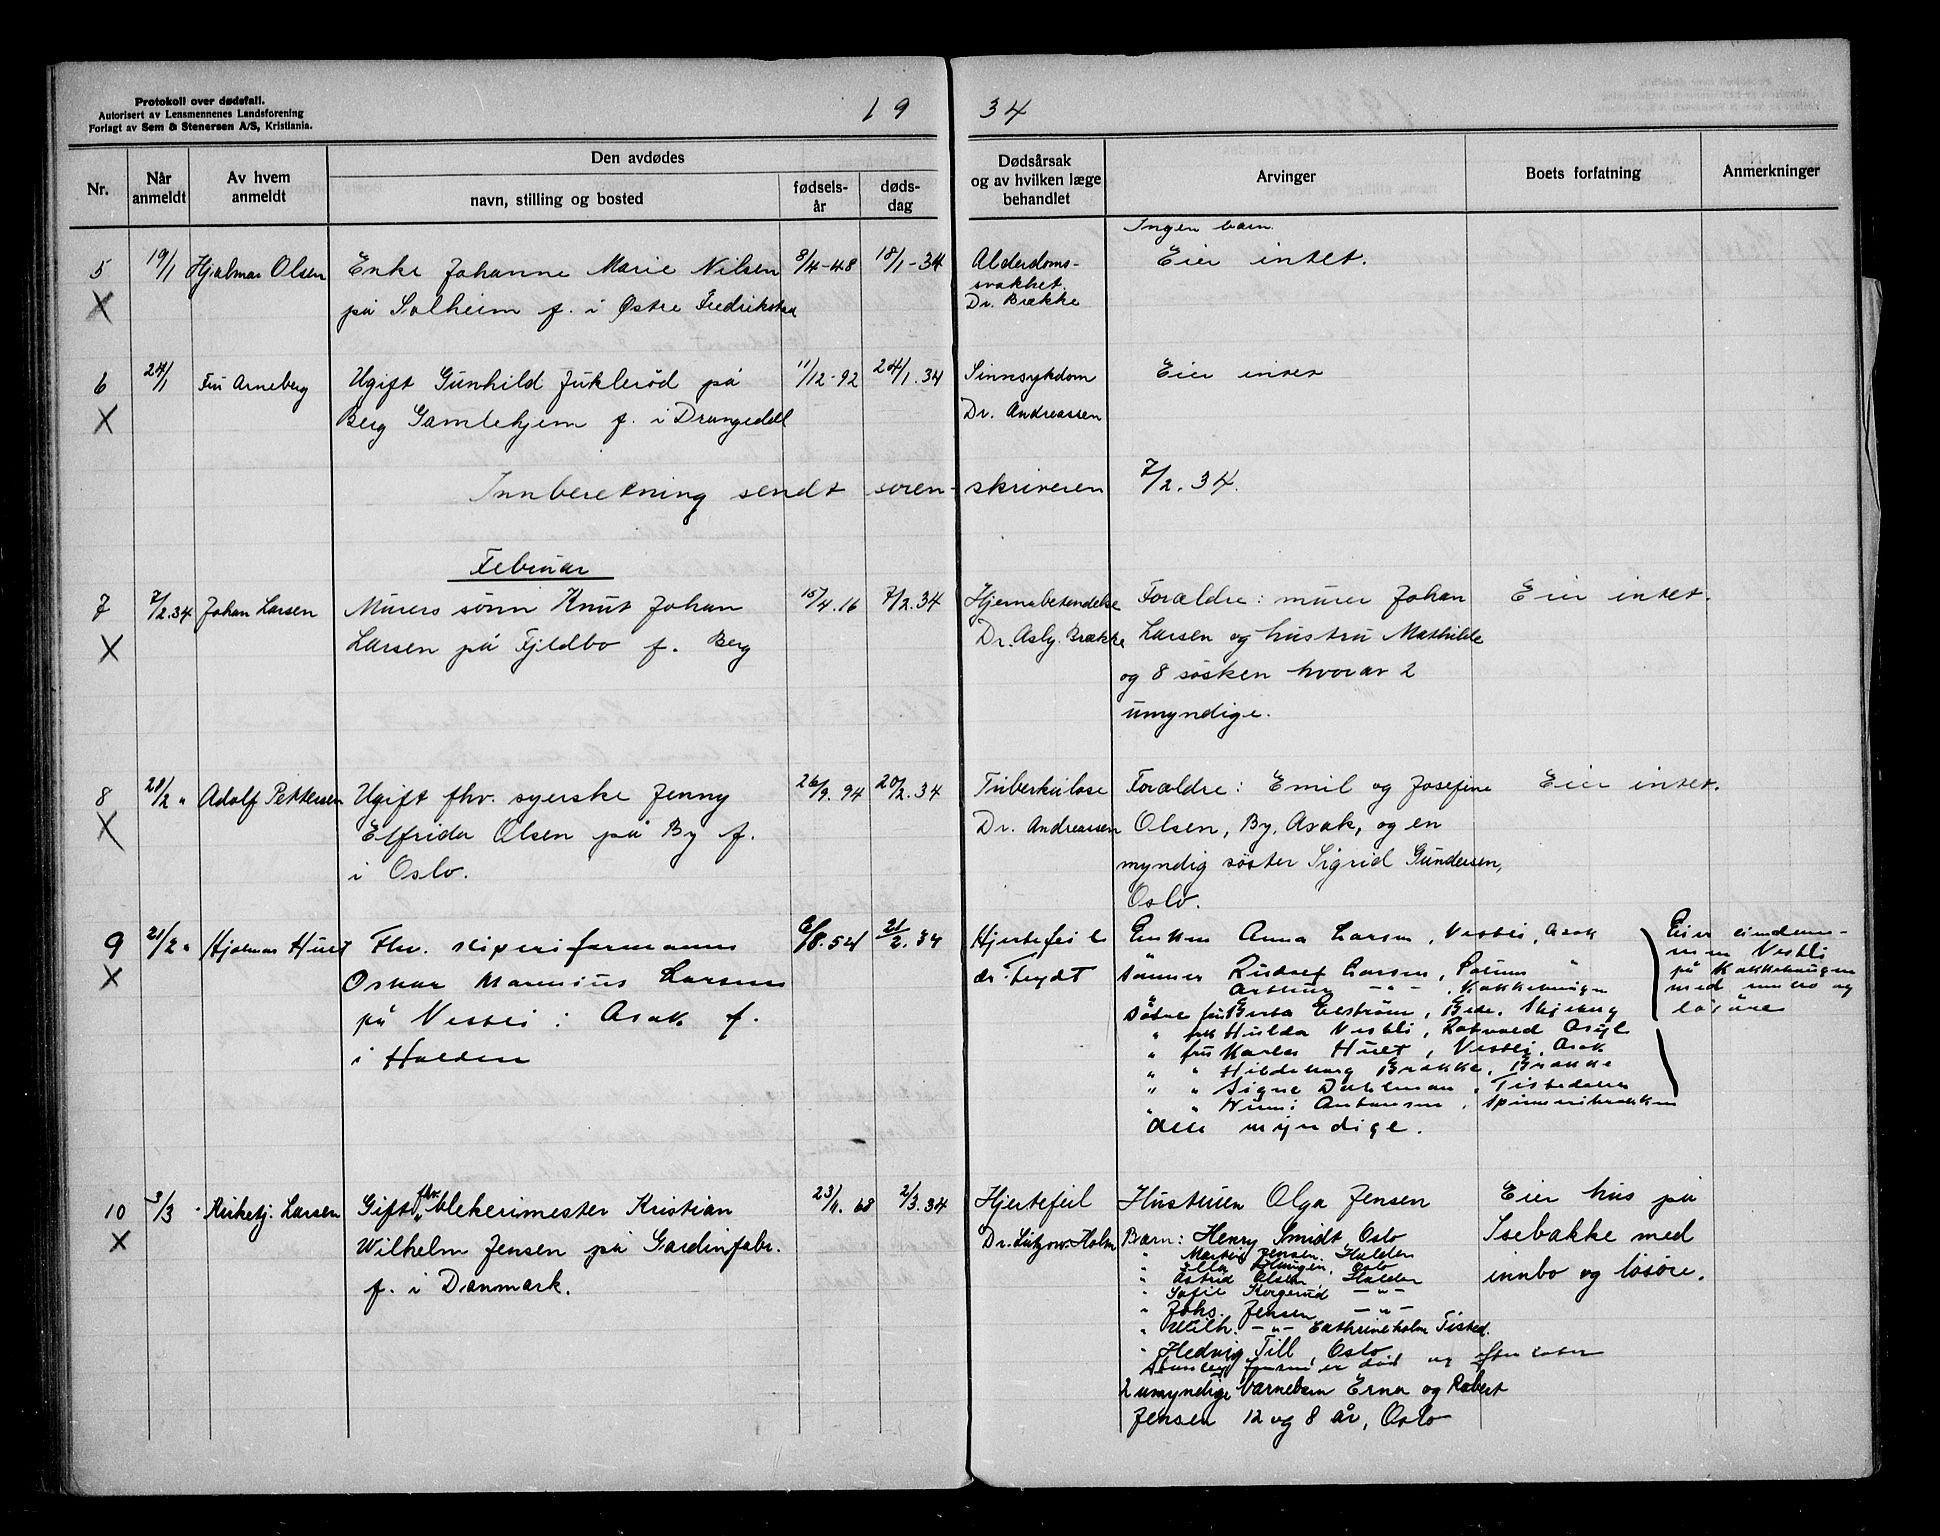 Protokoll over dødsfall.
Autorisert av Lensmennenes Landsforening
Forlagt av Sem & Stenersen A/S, Kristiania.
19 34
Nr.
Når anmeldt
Av hvem anmeldt
Den avdødes
navn, stilling og bosted
fødsels-år
døds-dag
Dødsårsak og av hvilken læge behandlet
Arvinger
Boets forfatning
Anmerkninger
5 19/1 Hjalmar Olsen Enke Johanne Marie Nilsen 8/4-48 18/1-34 Alderdoms- Ingen barn.
X på Solheim f. i Østre Fredrikstad svakhet. Eier intet.
Dr. Brække
6 24/1 Fru Arneberg Ugift Gunhild Juklerød på 11/12-92 24/1.34 Sinnsykdom Eier intet
X Berg Gamlehjem f. i Drangedal Dr. Andreassen
Innberetning sendt soren-skriveren 7/2.34.
Februar
7 7/2.34 Johan Larsen Murers sønn Knut Johan 15/4.16 7/2.34 Hjernebetendelse Foraldre: murer Johan Eier intet.
X Larsen på Fjeldbo f. Berg Dr. Asbj. Brække Larsen og hustru Mathilde
og 8 søsken hvorav 2
umyndige.
8 21/2 " Adolf Pettersen Ugift fhv. syerske Jenny 26/9.94 20/2.34 Tuberkulose Foraldre: Emil og Josefine Eier intet.
X Elfrida Olsen på By f. Dr. Andreassen Olsen, By, Asak, og en
i Oslo. myndig søster Sigrid Gundersen,
Oslo.
9 21/2 " Hjalmar Hult Fhv. sliperiformann 6/8.54 21/2.34 Hjertefeil Enken Anna Larsen, Vestli, Asak Eier eiendom-
X Oskar Marinius Larsen dr. Frydt sønner Rudolf Larsen, " men Vestli
på Vestli i Asak f. " Arthur -"- , Kakkehaugen på Kakkehaugen
i Halden døtre fru Berta Elstrøm, Skjeberg med innbo og
" frk Hulda Vestli, Rokvold Asyl løsøre
" fru Karla Hult, Vestli, Asak
" " Hildeborg Brække, Brække
" " Signe Dahlman, Tistedalen
" " Antonsen, Spinneribrakken
alle myndige.
10 3/3 " Kirketj. Larsen Gift fhv. blekerimester Kristian 23/11.68 2/3.34 Hjertefeil Hustruen Olga Jensen Eier hus på
X Wilhelm Jensen på Gardinfabr. Dr. Lützow-Holm Barn: Henry Smidt, Oslo Isebakke med
f. i Danmark. " Jensen, Halden innbo og løsøre.
" Ella Haugen, Oslo
" Astrid Olsen, Halden
" Sofie Korgerud -"-
" Johs. Jensen -"-
" Wilh. -"- Cathrineholm Tisted.
" Hedvig Till, Oslo
er død og efterlater
2 umyndige barnebarn Erna og Robert
Jensen 12 og 8 år, Oslo